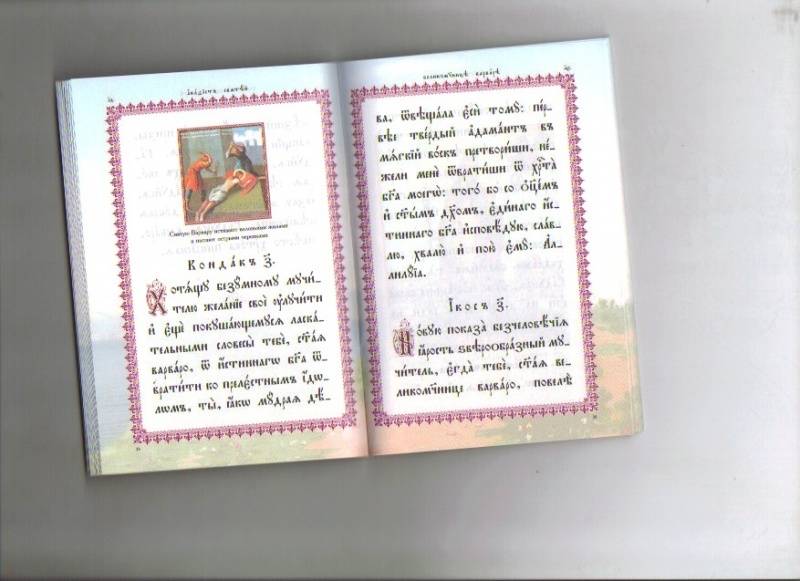 А҆ка́ѳїстъ свѧтѣ́й
Святую Варвару истязают воловьими жилами
и натирают острыми черепками
Конда́къ з҃.
Хотѧ́щꙋ безꙋ́мномꙋ мꙋчи́-
телю жела́нїе своѐ ᲂу҆лꙋчи́ти
и҆ є҆щѐ покꙋша́ющемꙋсѧ ласка́-
тельными словесы̀ тебѐ, ст҃а́ѧ
варва́ро, ѿ и҆́стиннагѡ бг҃а ѿ-
врати́ти ко преле́стнымъ і҆́дѡ-
лѡмъ, ты̀, ꙗ҆́кѡ мꙋ́драѧ дѣ́-
великомч҃ницѣ варва́рѣ
ва, ѿвѣща́ла є҆сѝ томꙋ̀: пе́р-
вѣе тве́рдый а҆дама́нтъ въ
мѧ́гкїй во́скъ претвори́ши, не́-
жели менѐ ѿврати́ши ѿ хрⷭ҇та̀
бг҃а моегѡ̀: того́ бо со ѻ҆ц҃е́мъ
и҆ ст҃ы́мъ дх҃омъ, є҆ди́наго и҆́с-
тиннаго бг҃а и҆сповѣ́дꙋю, сла́в-
лю, хвалю̀ и҆ пою̀ є҆мꙋ̀: А҆л-
лилꙋ́їа.
І҆́косъ з҃.
Но́вꙋю показа̀ безчеловѣ́чїѧ
ꙗ҆́рость ѕвѣроѻбра́зный мꙋ-
чи́тель, є҆гда̀ тебѐ, ст҃а́ѧ ве-
ликомч҃нице варва́ро, повелѣ̀